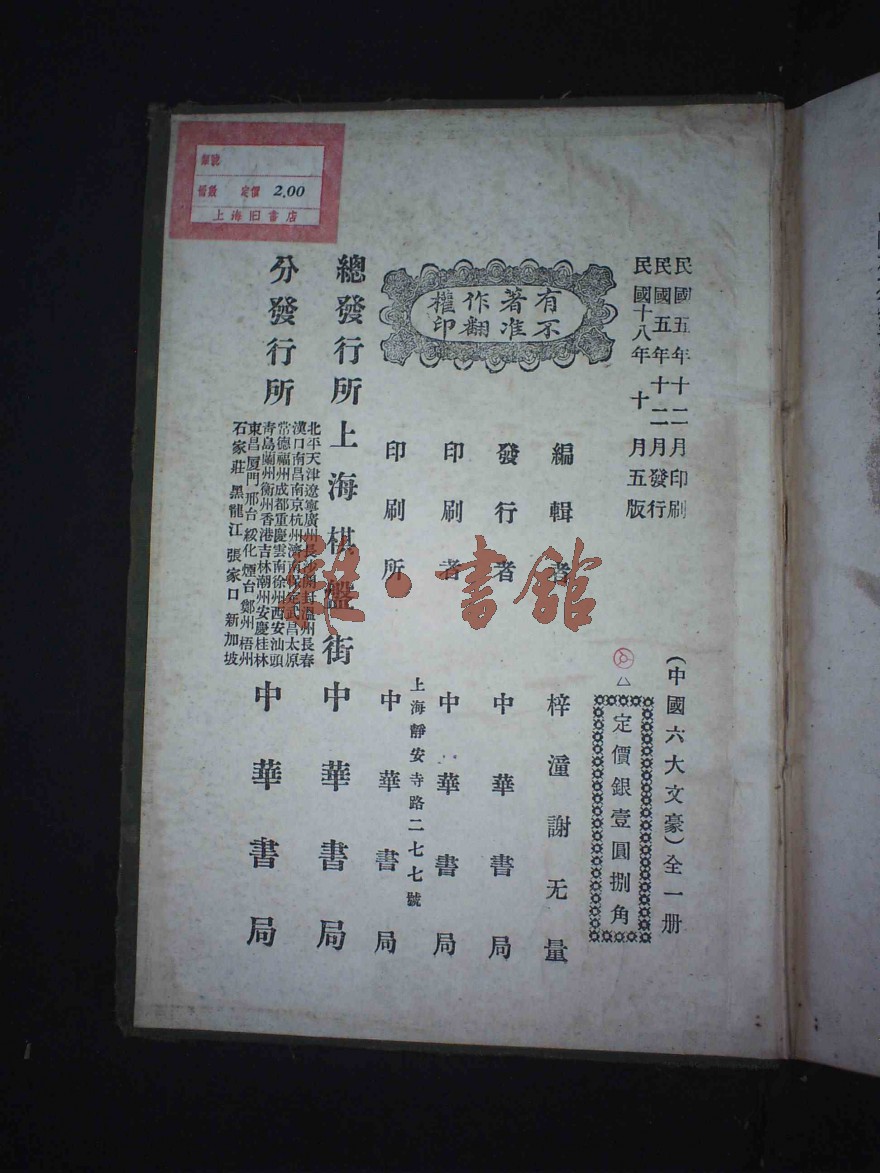 類號
冊數 定價 2.00
上海旧書店
民國五年十二月印刷
民國五年十二月發行
民國十八年十月五版
(中國六大文豪)全一册
定價銀壹圓捌角
有著作權
不准翻印
編輯者 梓潼謝无量
發行者 中華書局
印刷者 中華書局
上海靜安寺路二七七號
印刷所 中華書局
總發行所 上海棋盤街 中華書局
分發行所
北平天津遼寧廣州長沙開封溫州長春
漢口南昌南京杭州濟南保定武昌太原
常德福州成都重慶雲南徐州西安汕頭
青島蘭州衡州香港吉林潮州安慶桂林
東昌厦門邢台綏化煙台鄭州梧州
石家莊黑龍江張家口新加坡
中華書局
書館